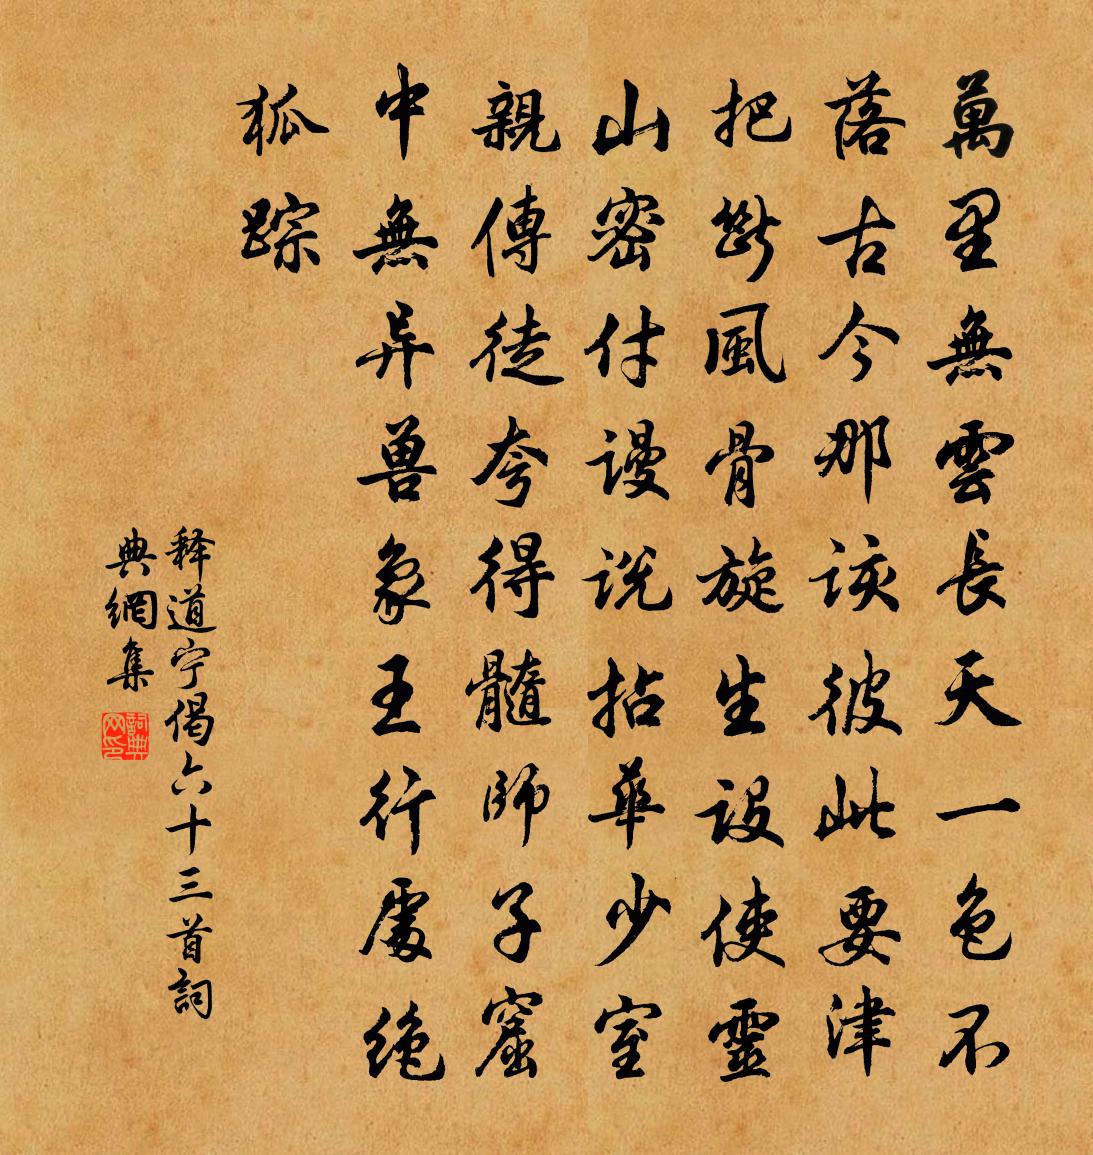 萬里無雲長天一色不
落古今那該彼此要津
把斷風骨旋生設使靈
山密付謾説拈華少室
親傳徒夸得髓師子窟
中無异兽象王行處絶
狐踪
释道宁偈六十三首詞
典網集
詞典网印